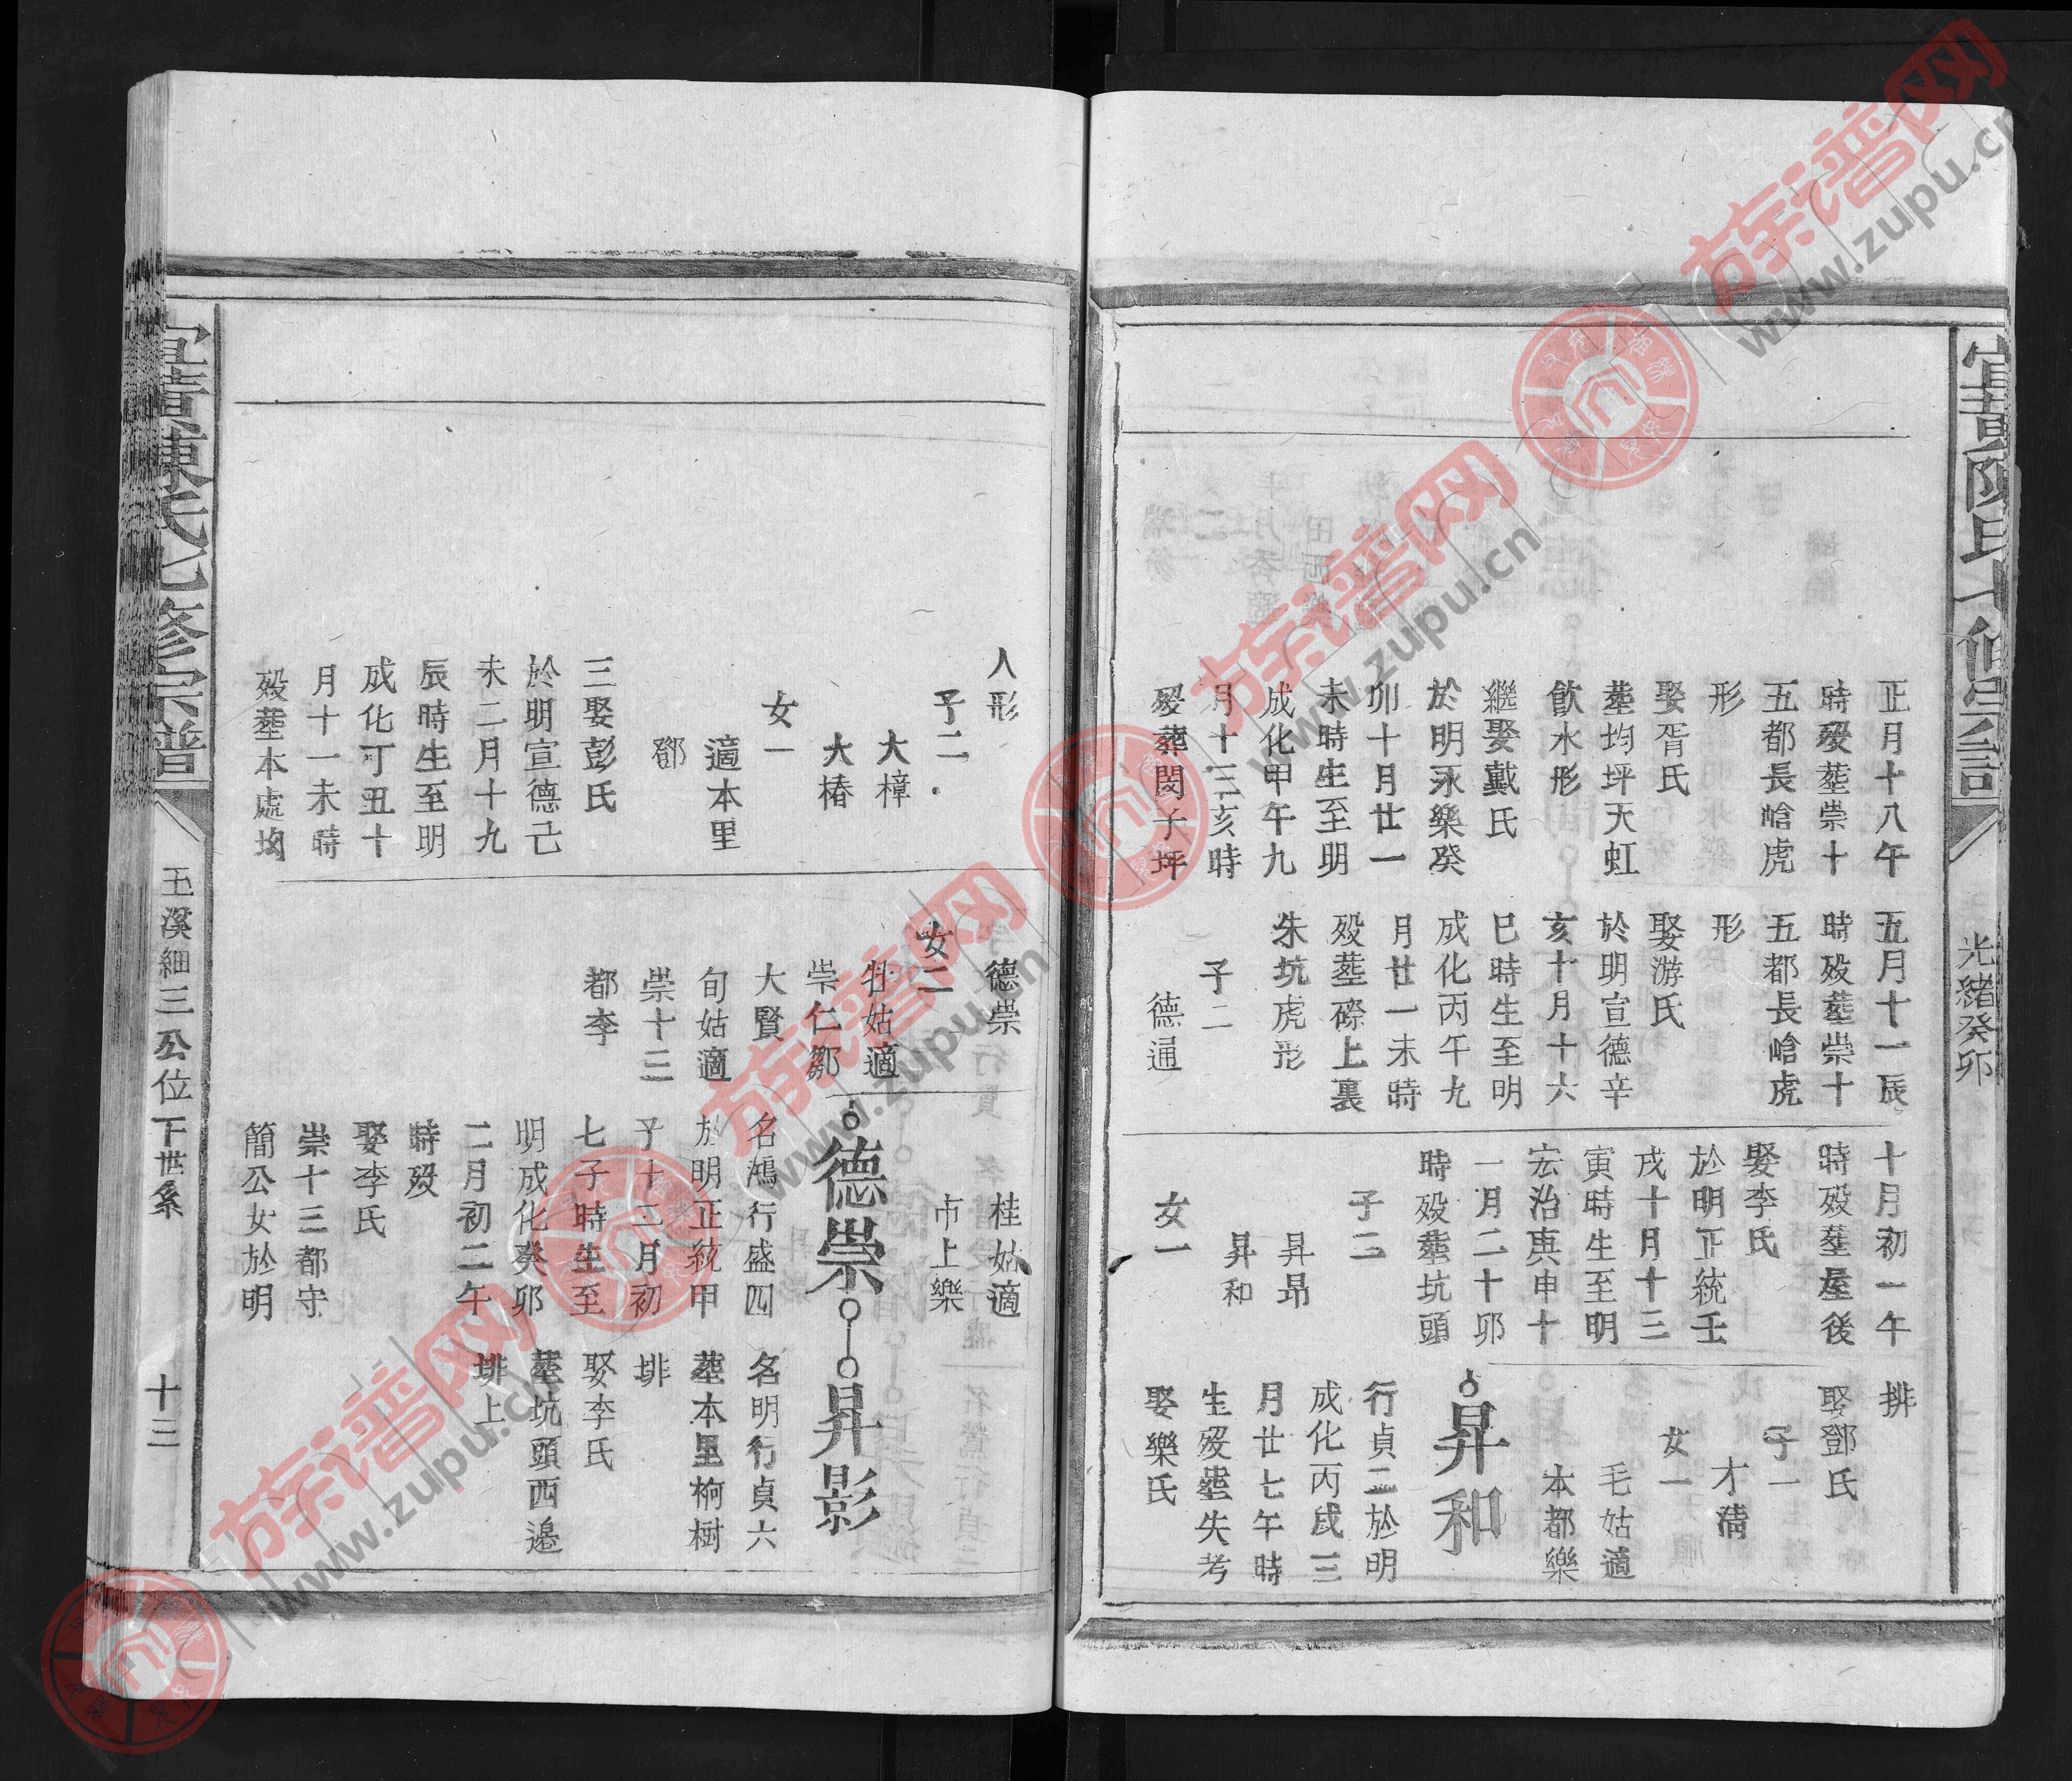 宜黃陳氏七修宗譜
光緒癸卯
正月十八午
時歿葬崇十
五都長嶺虎
形
娶胥氏
葬均坪天虹
飲水形
繼娶戴氏
於明永樂癸
卯十月廿一
未時生至明
成化甲午九
月十三亥時
歿葬閔子坪
五月十一辰
時歿葬崇十
五都長嶺虎
形
娶游氏
於明宣德辛
亥十月十六
巳時生至明
成化丙午九
月廿一未時
歿葬磜上裏
朱坑虎形
子二
德通
十月初一午
時歿葬屋後
娶李氏
於明正統壬
戌十月十三
寅時生至明
宏治庚申十
一月二十卯
時歿葬坑頭
子二
昇昂
昇和
女一
排
娶鄧氏
子一
才溝
女一
毛姑適
本都樂
昇和
行貞二於明
成化丙戌三
月廿七午時
生歿葬失考
娶樂氏
人形
子二
大樟
大椿
女一
適本里
鄒
三娶彭氏
於明宣德己
未二月十九
辰時生至明
成化丁丑十
月十一未時
歿葬本處坳
德崇
女二
牡姑適
崇仁鄒
大賢
旬姑適
崇十三
都李
桂姑適
市上樂
德崇
名鴻行盛四
於明正統甲
子十二月初
七子時生至
明成化癸卯
二月初二午
時歿
娶李氏
崇十三都守
簡公女於明
昇影
名明行貞六
葬本里桐樹
排
娶李氏
葬坑頭西邊
排上
宜黃陳氏七修宗譜
玉溪細三公位下世系
十三
族谱网
www.zupu.cn
族谱网
www.zupu.cn
族谱网
www.zupu.cn
族谱网
www.zupu.cn